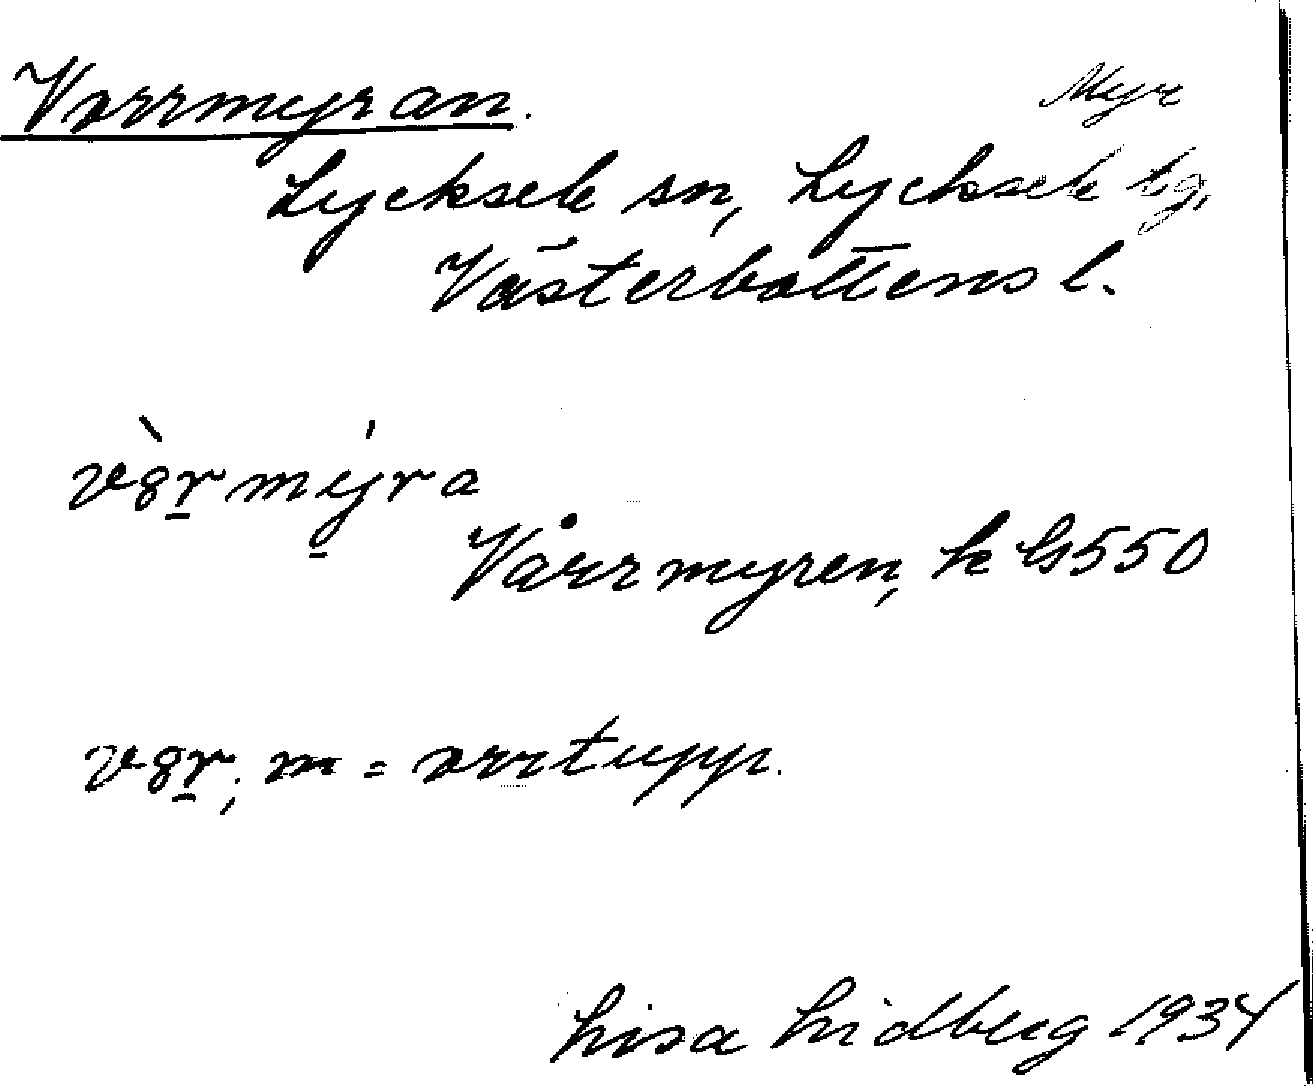 Vorrmyran.
Myr
Lycksele sn, Lycksele lg,
Västerbottens l.
vòrmýra
Vårrmyren, k bl 550
vor, m = orrtupp.
Lisa Lidberg 1934